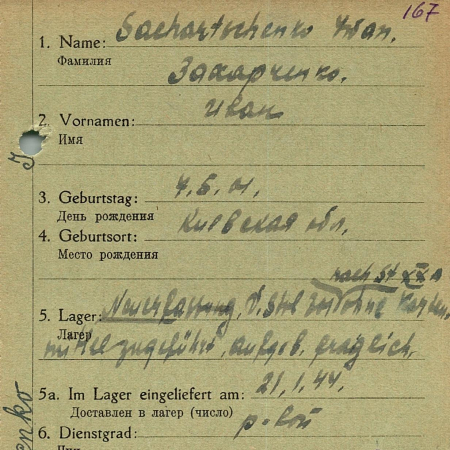 167
1. Name: Sachartschenko Iwan.
Фамилия
Захарченко.
2. Vornamen: Иван
Имя
3. Geburtstag: 7.5.01.
День рождения
4. Geburtsort: Киевская обл.
Место рождения
nach St XX A
5. Lager: Neuerfassung,
Лагер
zugeführt, aufgeb. fraglich.
5a. Im Lager eingeliefert am: 21.1.44.
Доставлен в лагер (число)
6. Dienstgrad: р-вой
Чин
enko